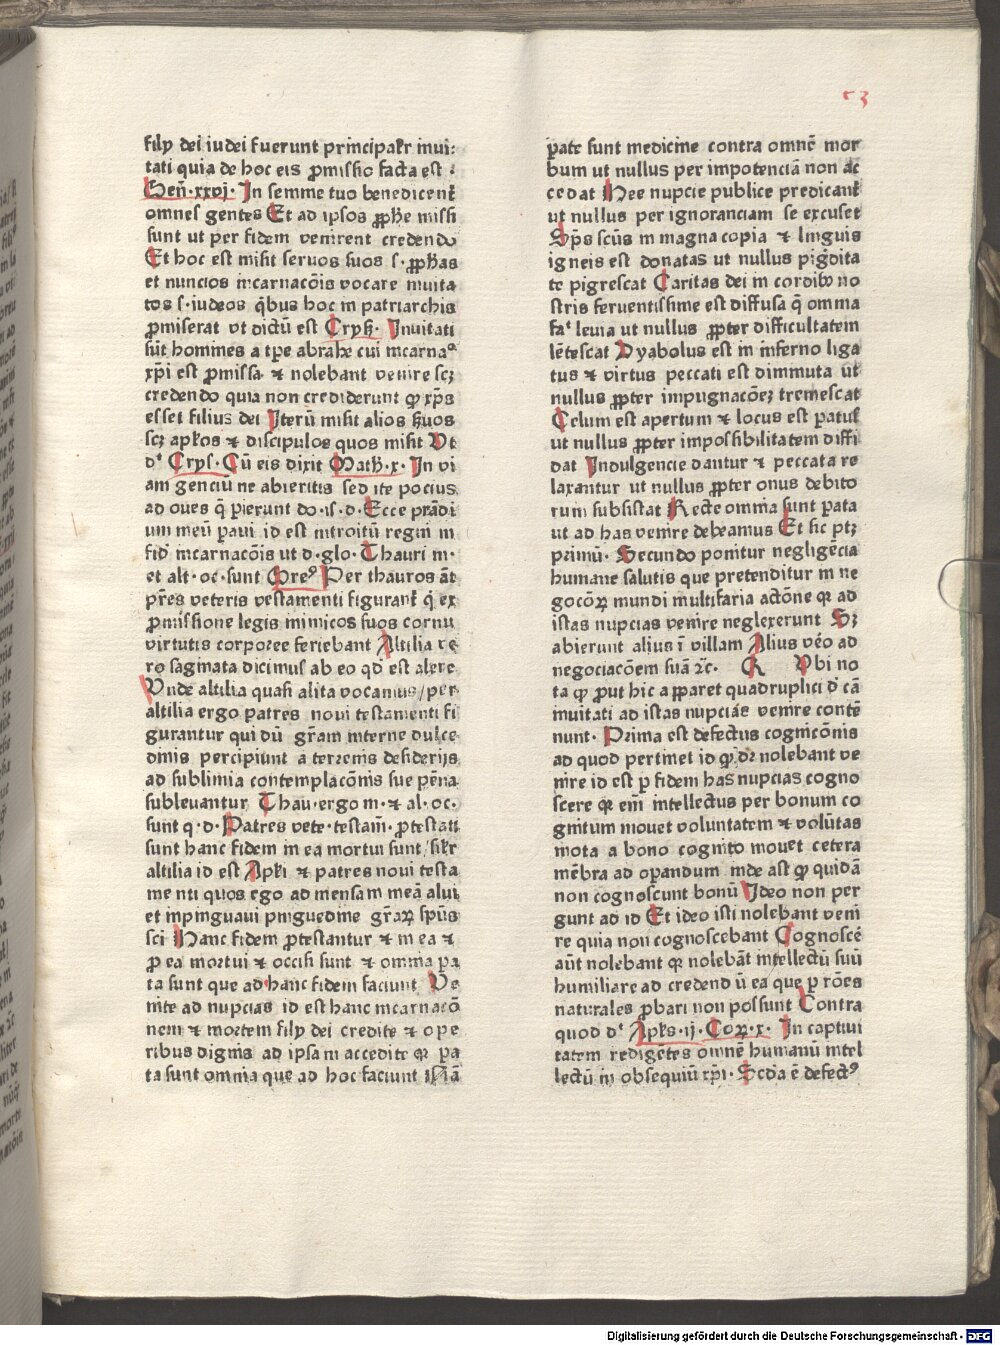 53
filij dei iudei fuerunt principalr̄ inui:
tati quia de hoc eis ꝓmissio facta est :
Gen̄·xxvj· In semine tuo benedicent̄
omnes gentes Et ad ipsos ꝓphe missi
sunt ut per fidem venirent credendo
Et hoc est misit seruos suos s·ꝓphas
et nuncios incarnacōis vocare inuita
tos s·iudeos qͥbus hoc in patriarchis
ꝓmiserat vt dictū est Crys̄· Inuitati
sūt homines a tp̄e abrahe cui incarnaᵒ
xp̄i est ꝓmissa ⁊ nolebant venire scꝫ
credendo quia non crediderunt ꝙ xp̄s
esset filius dei Iterū misit alios s̄uos
scꝫ apl̄os ⁊ discipulos quos misit Vt
dͭ Crys· Cū eis dixit Math̄·x· In vi
am genciū ne abieritis sed ite pocius
ad oues q̄ ꝑierunt do·is·d·Ecce prādi
um meū ꝑaui id est introitū regni in
fid̄ incarnacōis ut d·glo·Thauri m·
et alt·oc·sunt Greꝰ Per thauros āt
pr̄es veteris vestamenti figurant̄ q̄ ex
ꝓmissione legis inimicos suos cornu
virtutis corporee feriebant Altilia ve
ro saginata dicimus ab eo qd̄ est alere
Vnde altilia quasi alita vocamus/per
altilia ergo patres noui testamenti fi
gurantur qui dū gr̄am interne dulce
dinis percipiunt a terrenis desiderijs
ad sublimia contemplacōnis sue pēna
subleuantur Thau·ergo m·⁊ al·oc·
sunt q·d·Patres vete·testam̄·ꝓtestati
sunt hanc fidem in ea mortui sunt/silr̄
altilia id est Apl̄i ⁊ patres noui testa
menti quos ego ad mensam meā alui
et inpinguaui pinguedine gr̄aꝝ spūs
sci Hanc fidem ꝓtestantur ⁊ in ea ⁊
ꝓ ea mortui ⁊ occisi sunt ⁊ omnia pa
ta sunt que ad hanc fidem faciunt Ve
nite ad nupcias id est hanc incarnacō
nem ⁊ mortem filij dei credite ⁊ ope
ribus dignis ad ipsam accedite qꝛ pa
ta sunt omnia que ad hoc faciunt
ꝑate sunt medicine contra omnē mor
bum ut nullus per impotenciā non ac
cedat Hee nupcie publice predicant̄
ut nullus per ignoranciam se excuset
Sp̄s scūs in magna copia ⁊ linguis
igneis est donatus ut nullus pig̈dita
te pigrescat Caritas dei in cordibꝰ no
stris feruentissime est diffusa q̄ omnia
faͭ leuia ut nullus ꝓpter difficultatem
lētescat Dyabolus est in inferno liga
tus ⁊ virtus peccati est diminuta ut
nullus ꝓpter impugnacōeꝫ tremescat
Celum est apertum ⁊ locus est patulꝰ
ut nullus ꝓpter impossibilitatem diffi
dat Indulgencie dantur ⁊ peccata re
laxantur ut nullus ꝓpter onus debito
rum subsistat Recte omnia sunt ꝑata
ut ad has venire debeamus Et sic ptꝫ
primū· Secundo ponitur negligēcia
humane salutis que pretenditur in ne
gocōꝝ mundi multifaria actōne qꝛ ad
istas nupcias venire neglexerunt Sꝫ
abierunt alius ī villam Alius v̄o ad
negociacōem suā ⁊c̄· R Vbi no
ta ꝙ ꝓut hic apparet quadruplici d̄ cā
inuitati ad istas nupcias venire contē
nunt· Prima est defectus cognicōnis
ad quod pertinet id ꝙ dꝛ nolebant ve
nire id est ꝑ fidem has nupcias cogno
scere qꝛ eni̅ intellectus per bonum co
gnitum mouet voluntatem ⁊ volūtas
mota a bono cognito mouet cetera
mēbra ad oꝑandum inde ast ꝙ quidā
non cognoscunt bonū Ideo non per
gunt ad id Et ideo isti nolebant veni
re quia non cognoscebant Cognoscē
aūt nolebant qꝛ nolebāt intellectū suū
humiliare ad credend ū ea que ꝑ rōes
naturales ꝓbari non possunt Contra
quod dͭ Apl̄s·ij·Coꝝ·x· In captiui
tatem redigētes omnē humanū intel
lectū in obsequiū xp̄i· Scda ē defectꝰ
Digitalisierung gefördert durch die Deutsche Forschungsgemeinschaft - DFG